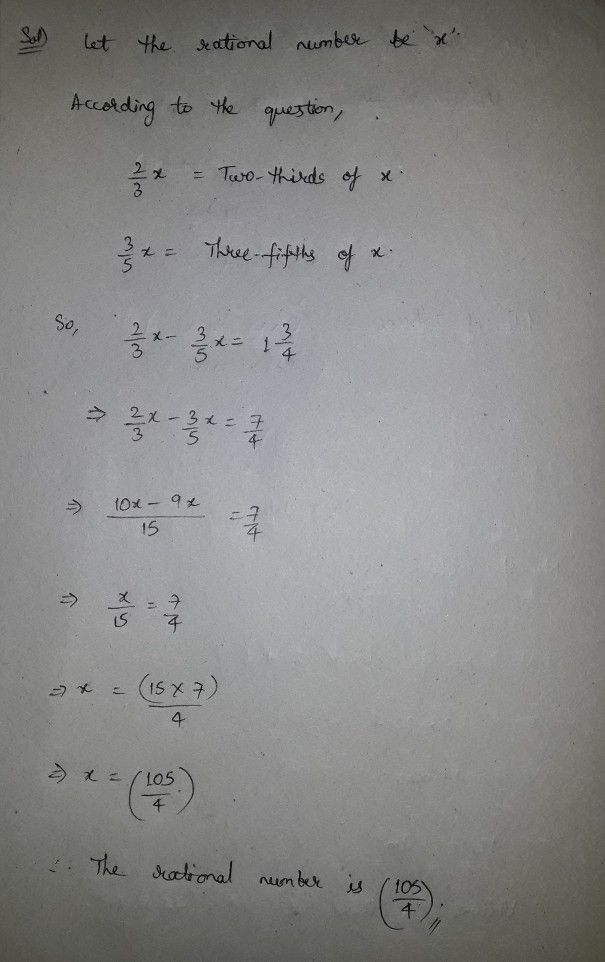 Sol) Let the rational number be 'x'.
According to the question,
2/3 x = Two-thirds of x.
3/5 x = Three-fifths of x.
So, 2/3 x - 3/5 x = 1 3/4
⇒ 2/3 x - 3/5 x = 7/4
⇒ (10x - 9x)/15 = 7/4
⇒ x/15 = 7/4
⇒ x = (15 × 7)/4
⇒ x = (105/4)
∴ The rational number is (105/4).//